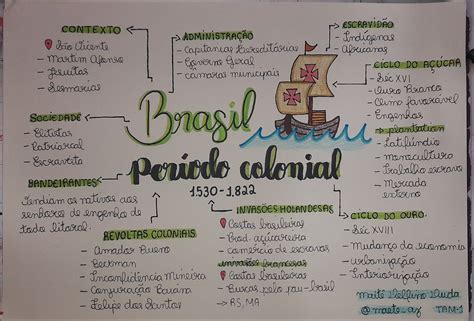 CONTEXTO
São Vicente
- Martim Afonso
- Jesuítas
- Sesmarias
ADMINISTRAÇÃO
- Capitanias Hereditárias
- Governo Geral
- câmaras municipais
ESCRAVIDÃO
- Indígenas
- Africanos
CICLO DO AÇÚCAR
- Séc XVI
- Ouro Branco
- Clima favorável
- Engenhos
→ plantation
- Latifúndio
- monocultura
- Trabalho escravo
- Mercado externo
SOCIEDADE
- Elitistas
- Patriarcal
- Escravista
Brasil
Período colonial
1530-1822
BANDEIRANTES
Vendiam os nativos aos
senhores de engenho de
todo litoral.
REVOLTAS COLONIAIS
- Amador Bueno
- Beckman
- Inconfidência Mineira
- Conjuração Baiana
- Felipe dos Santos
INVASÕES HOLANDESAS
- Costas brasileiras
- Prod. açucareira
- comércio de escravos
invasões francesas
- Costas brasileiras
- Buscas pelo pau-brasil
→ RJ, MA
CICLO DO OURO
- Séc XVIII
- Mudança da economia
- urbanização
- Interiorização
TAM-1